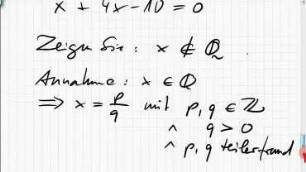 x + 4x - 10 = 0
Zeigen Sie: x ∉ ℚ
Annahme: x ∈ ℚ
⇒ x = p/q mit p, q ∈ ℤ
∧ q > 0
∧ p, q teilerfremd